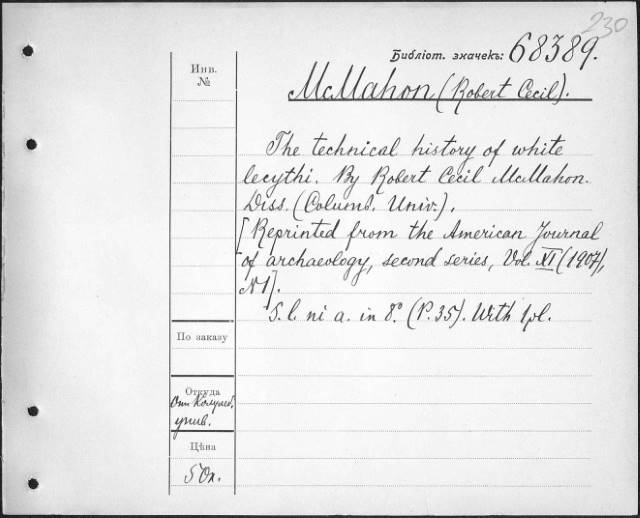 230
Библіот. значекъ: 68389.
Инв.
№
McMahon (Robert Cecil).
The technical history of white
lecythi. By Robert Cecil McMahon.
Diss. (Columb. Univ.).
[Reprinted from the American Journal
of archaeology, second series, Vol. XI (1907),
N1].
S. l. ni a. in 8º. (P. 35). With 1 pl.
По заказу
Откуда
Отъ
унив.
Цѣна
50к.